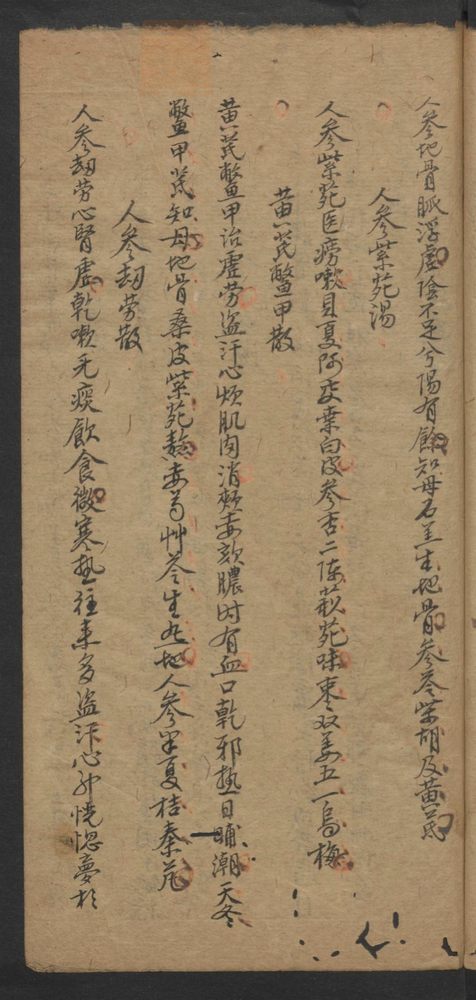 人參地骨脈浮虛陰不足兮陽有餘知母石羔生地骨參苓柴胡及黃芪
人參紫苑湯
人參紫苑医癆嗽貝夏阿交桑白皮參杏二陳菽苑味枣双姜五一烏梅
黃芪鱉甲散
黃芪鱉甲治虛劳盜汗心煩肌肉消頰赤欬膿时有血口乾邪热日晡潮天冬
鱉甲芪知母地骨桑皮紫苑赤芍艸苓生地人參半夏桔秦艽
人參刼劳散
人參刼劳心腎虛乾嗽无痰飲食微寒热往来多盜汗心忡恍惚夢於